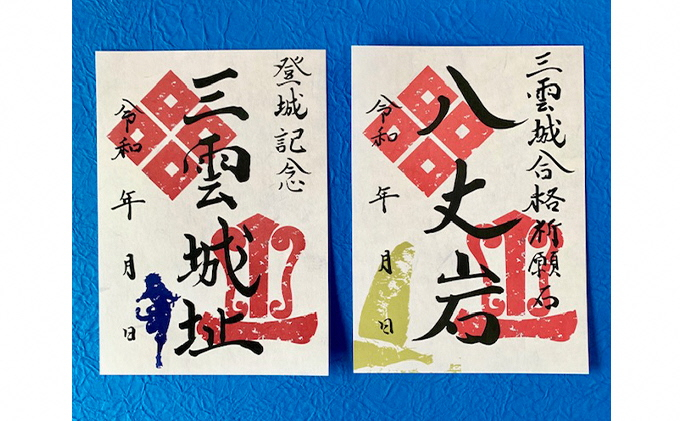 登城記念
三雲城址
令和 年 月 日
三雲城合格祈願石
八丈岩
令和 年 月 日